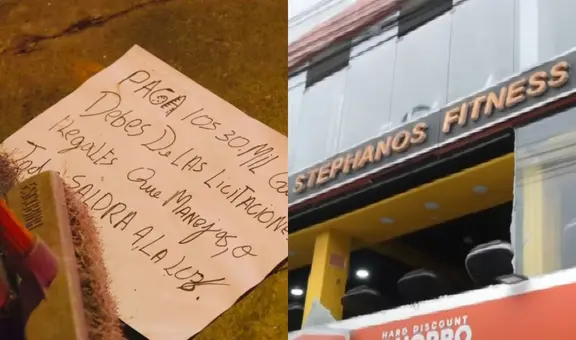 PAGA los 30 MIL que
Debes De LAS LICITACIONE
Ilegales Que Manejas, o
Todo SALDRA A LA LUZ.
STEPHANOS FITNESS
HARD DISCOUNT